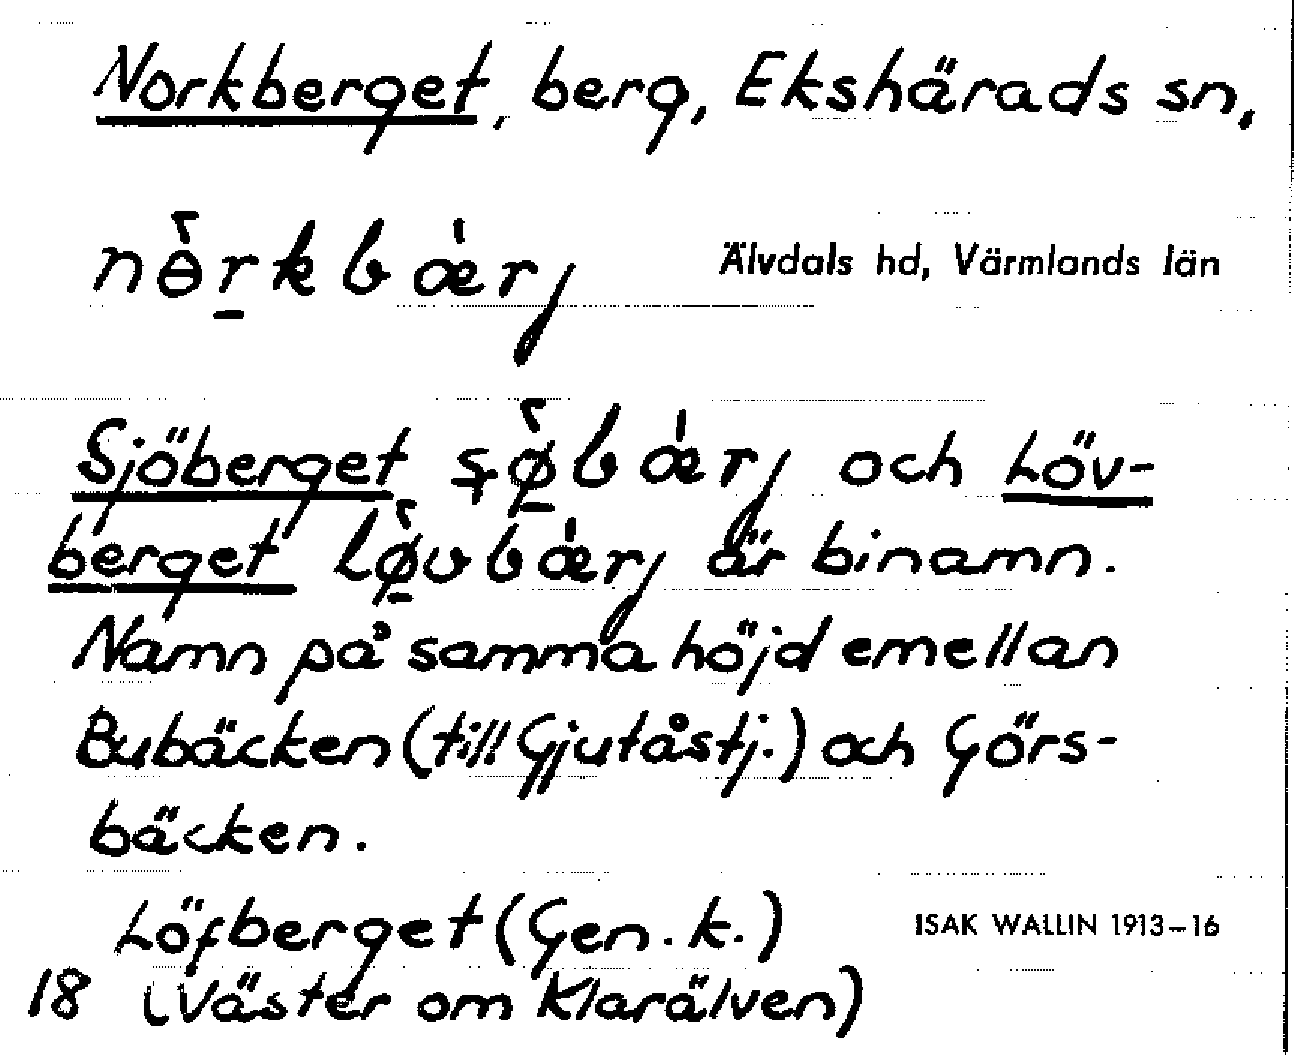 Norkberget, berg, Ekshärads sn,
Älvdals hd, Värmlands län
Sjöberget och Löv-
berget är binamn.
Namn på samma höjd emellan
Bubäcken (till Gjutåstj.) och Görs-
bäcken.
Löfberget (Gen. k.)
ISAK WALLIN 1913–16
18 (Väster om Klarälven)